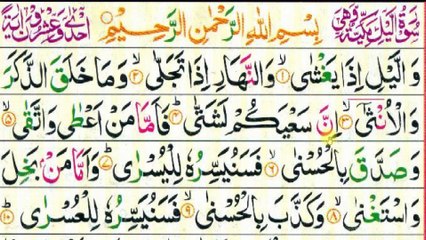 سورة الیل مکیة وهی بسم الله الرحمن الرحیم احدی وعشرون ایة
وَالَّيْلِ اِذَا يَغْشٰى ۙ﴿۱﴾ وَالنَّهَارِ اِذَا تَجَلّٰى ۙ﴿۲﴾ وَمَا خَلَقَ الذَّكَرَ
وَالْاُنْثٰۤى ۙ﴿۳﴾ اِنَّ سَعْيَكُمْ لَشَتّٰى ؕ﴿۴﴾ فَاَمَّا مَنْ اَعْطٰى وَاتَّقٰى ۙ﴿۵﴾
وَصَدَّقَ بِالْحُسْنٰى ۙ﴿۶﴾ فَسَنُيَسِّرُهٗ لِلْيُسْرٰى ؕ﴿۷﴾ وَاَمَّا مَنْۢ بَخِلَ
وَاسْتَغْنٰى ۙ﴿۸﴾ وَكَذَّبَ بِالْحُسْنٰى ۙ﴿۹﴾ فَسَنُيَسِّرُهٗ لِلْعُسْرٰى ؕ﴿۱۰﴾